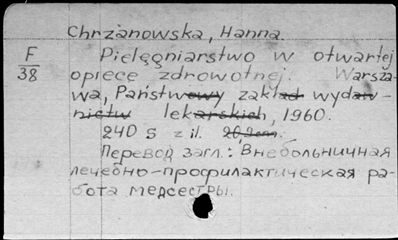 Chrzanowska, Hanna.
F
38
Pielęgniarstwo w otwartej
opiece zdrowotnej. Warsza-
wa, Państwowy zakład wydaw-
nictw lekarskich, 1960.
240 s z il. 20,2 cm.
Перевод загл.: Внебольничная
лечебно-профилактическая ра-
бота медсестры.